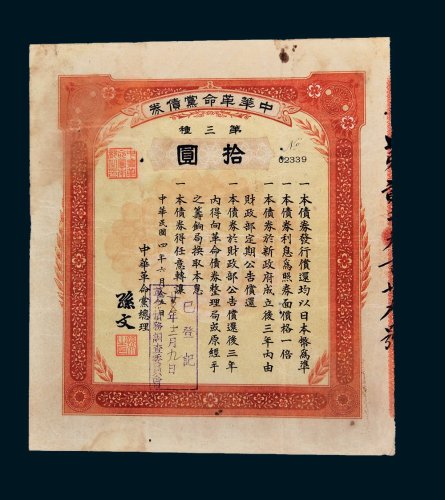 中華革命黨債券
第三種
拾圓
No 02339
一本債券發行償還均以日本幣為準
一本債券利息為照券面價格一倍
一本債券於新政府成立後三年內由
財政部定期公告償還
一本債券於財政部公告償還後三年
內得向革命債券整理局或原經手
之籌餉局換取本息
一本債券得任意轉讓
中華民國四年六月 日
中華革命黨總理
孫文
已登記
年十二月九日